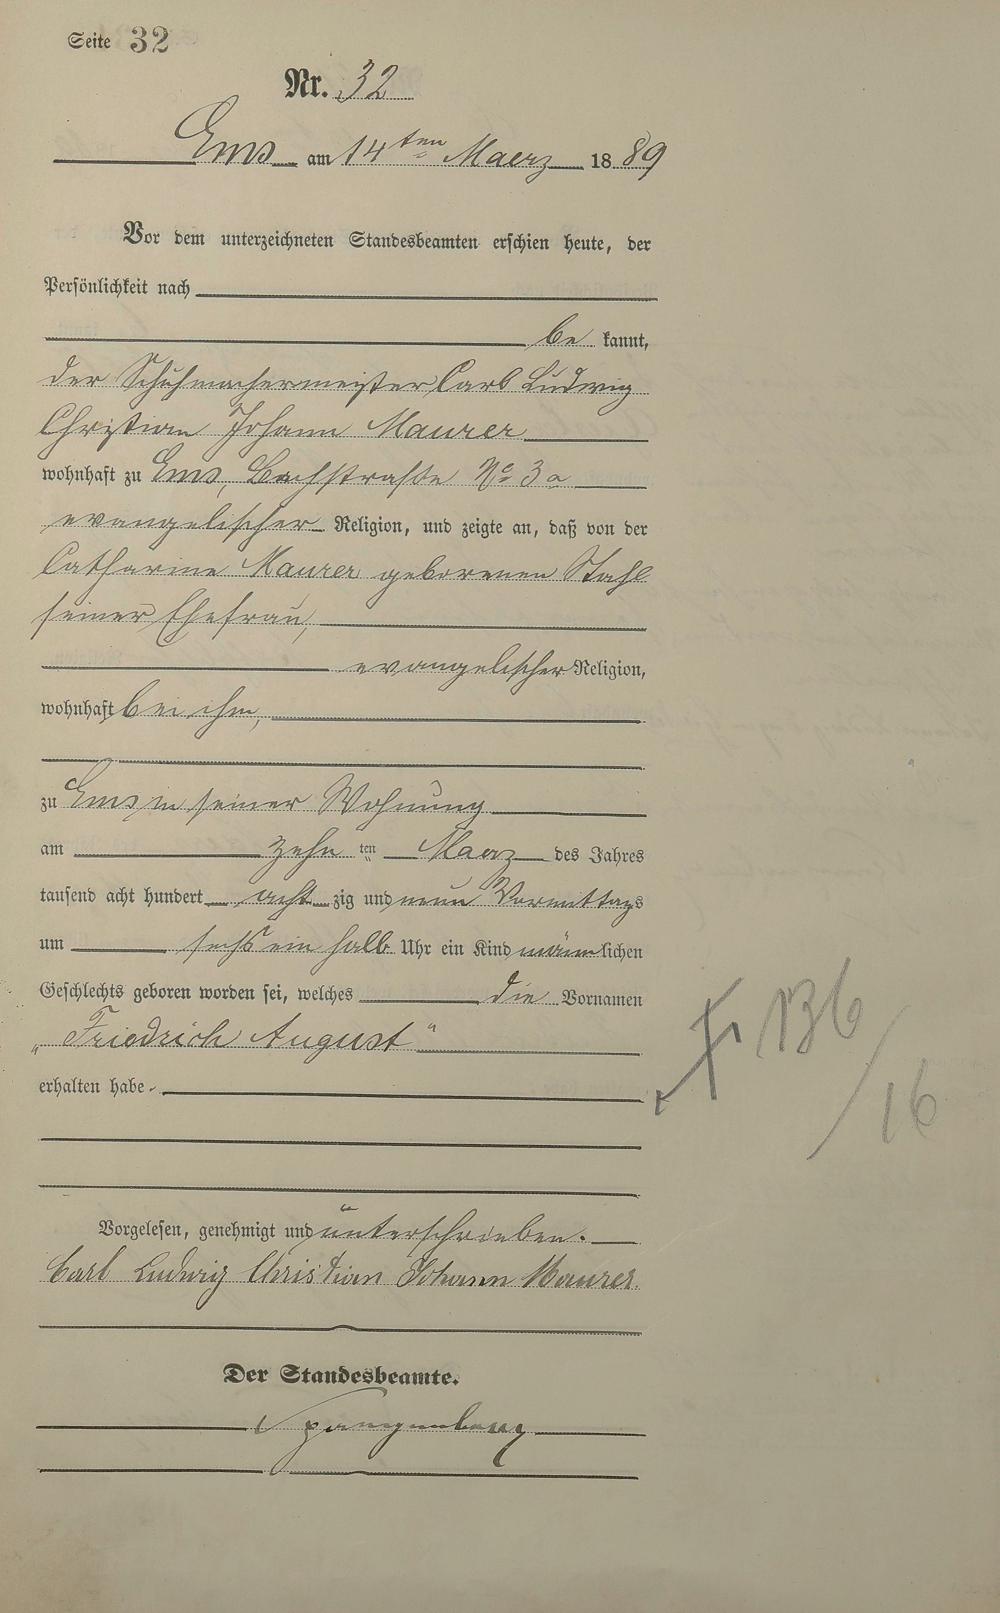 Seite 32
Nr. 32
Ems am 14ten Maerz 1889
Vor dem unterzeichneten Standesbeamten erschien heute, der
Persönlichkeit nach
be kannt,
der Schuhmachermeister Carl Ludwig
Christian Johann Maurer
wohnhaft zu Ems, Bachstraße No 3a
evangelischer Religion, und zeigte an, daß von der
Catharine Maurer geborenen Stahl
seiner Ehefrau,
evangelischer Religion,
wohnhaft bei ihm,
zu Ems in seiner Wohnung
am zehn ten Maerz des Jahres
tausend acht hundert acht zig und neun Vormittags
um sechs ein halb Uhr ein Kind männlichen
Geschlechts geboren worden sei, welches die Vornamen
„Friedrich August“
erhalten habe.
Vorgelesen, genehmigt und unterschrieben.
Carl Ludwig Christian Johann Maurer
Der Standesbeamte.
Spangenberg
136
/16